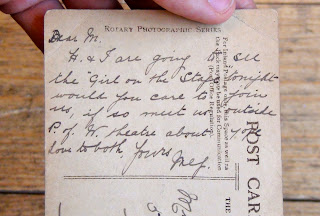 ROTARY PHOTOGRAPHIC SERIES
Dear M.
H. & I are going to see
the Girl on the Stage tonight
would you care to join
us, if so meet us outside
P. of W. theatre about 7.
love to both. Yours
For Inland Postage only this Space as well as
the back may be used for Communication
(Post Office Regulation).
POST CAR
THE